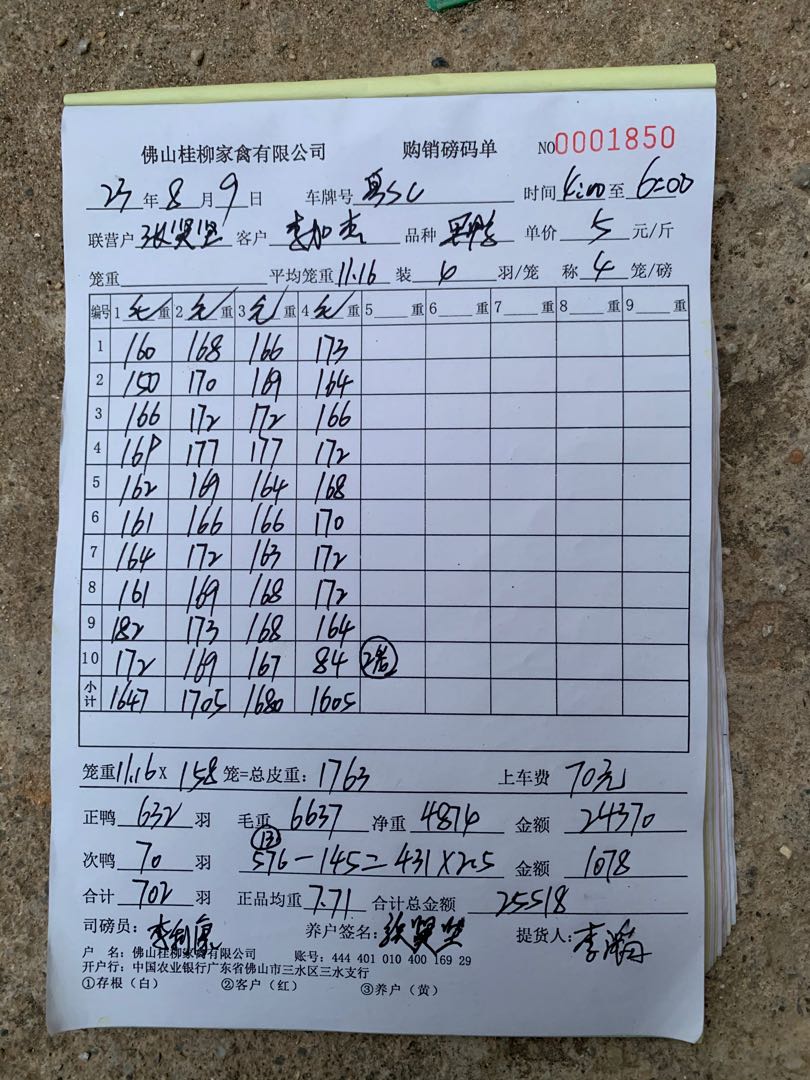 佛山桂柳家禽有限公司 购销磅码单 NO 0001850
23 年 8 月 9 日 车牌号 时间 4:00 至 6:00
联营户 张贤坚 客户 李加杰 品种 单价 5 元/斤
笼重 平均笼重 11.16 装 4 羽/笼 称 4 笼/磅
编号 1 毛 重 2 毛 重 3 毛 重 4 毛 重 5 重 6 重 7 重 8 重 9 重
1 160 168 166 173
2 150 170 169 164
3 166 172 172 166
4 169 177 177 172
5 162 169 164 168
6 161 166 166 170
7 164 172 163 172
8 161 169 168 172
9 182 173 168 164
10 172 169 167 84 2笼
小计 1647 1705 1680 1605
笼重 11.16 X 158 笼=总皮重: 1763 上车费 70元
正鸭 632 羽 毛重 6637 净重 4874 金额 24370
13
次鸭 70 羽 576-145=431X2.5 金额 1078
合计 702 羽 正品均重 7.71 合计总金额 25518
司磅员: 养户签名: 张贤坚 提货人:
户 名: 佛山桂柳家禽有限公司 账号: 444 401 010 400 169 29
开户行: 中国农业银行广东省佛山市三水区三水支行
①存根（白） ②客户（红） ③养户（黄）